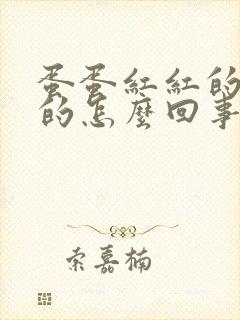 蛋蛋紅紅的
的怎麼回事
索嘉楠